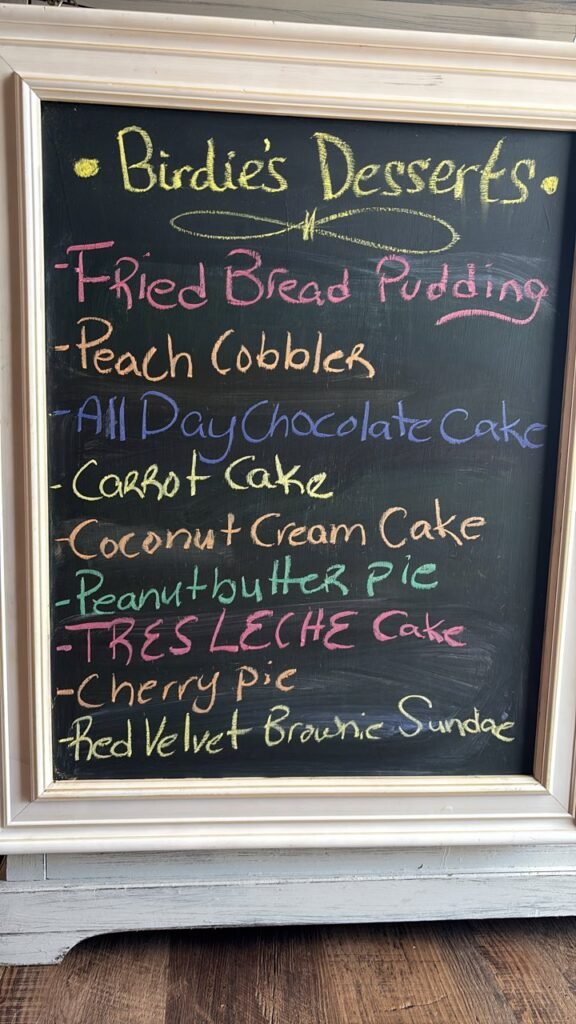 • Birdie's Desserts •
-Fried Bread Pudding
-Peach Cobbler
-All Day Chocolate Cake
-Carrot Cake
-Coconut Cream Cake
-Peanutbutter pie
-TRES LECHE Cake
-Cherry pie
-Red Velvet Brownie Sundae